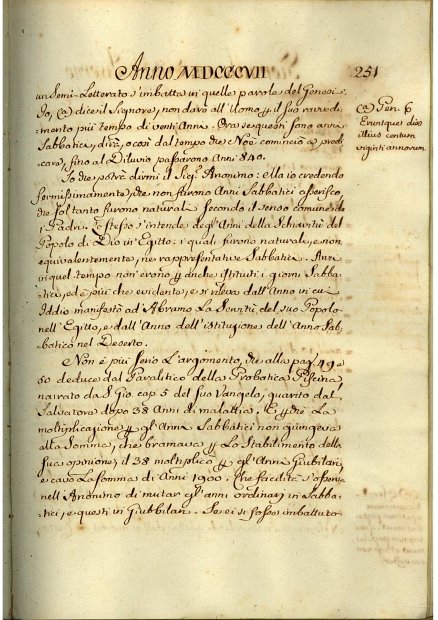 Anno MDCCCVII
251
un Semi-Letterato s'imbatta in quelle parole del Genesi
Io, (a) dice il Signore, non darò all'Uomo p il suo ravvedi-
mento più tempo di venti Anni. Ora se questi sono anni
Sabbatici, dirà, e così dal tempo che Noè cominciò a predi-
care, fino al Diluvio passarono Anni 840.
Io che potrà dirmi il Sigr. Anonimo: ella io credendo
fermissimamente, che non furono Anni Sabbatici asserisco,
che soltanto furono naturali secondo il senso comune de
i Padri. Lo stesso s'intende degl'Anni della Schiavitù del
Popolo di Dio in Egitto: i quali furono naturali, e non
equivalentemente, ne rappresentative Sabbatici. Anzi
in quel tempo non erano p anche istituti i giorni Sabba-
tici, ed è più che evidente, e si rileva dall'Anno in cui
Iddio manifestò ad Abramo La Servitù del suo Popolo
nell'Egitto, e dall'Anno dell'istituzione dell'Anno Sab-
batico nel Deserto.
Non è più serio L'argomento, che alla pag. 49 e
50 deduce dal Paralitico della Probatica Piscina,
narrato da S. Gio. cap 5 del suo Vangelo, guarito dal
Salvatore dopo 38 Anni di malattia; E p che La
moltiplicazione p gl'Anni Sabbatici non giungeva
alla Somma, che bramava p Lo Stabilimento della
sua opinione, il 38 moltiplicò p gl'Anni Giubilari,
e cavò La somma di Anni 1900. Che facilità s'osserva
nell'Anonimo di mutar gl'anni ordinarj in Sabba-
tici, e questi in Giubbilari. Se ei si fosse imbattuto
(a) Gen. 6
Eruntque dies
illius centum
viginti annorum